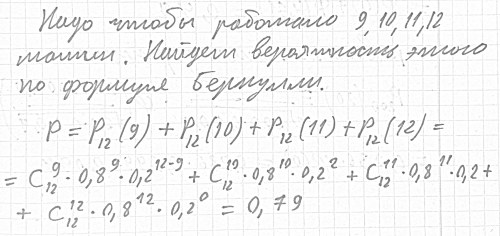 Надо чтобы работало 9, 10, 11, 12
машин. Найдем вероятность этого
по формуле Бернулли.
P = P₁₂(9) + P₁₂(10) + P₁₂(11) + P₁₂(12) =
= C₁₂⁹ · 0,8⁹ · 0,2¹²⁻⁹ + C₁₂¹⁰ · 0,8¹⁰ · 0,2² + C₁₂¹¹ · 0,8¹¹ · 0,2 +
+ C₁₂¹² · 0,8¹² · 0,2⁰ = 0,79